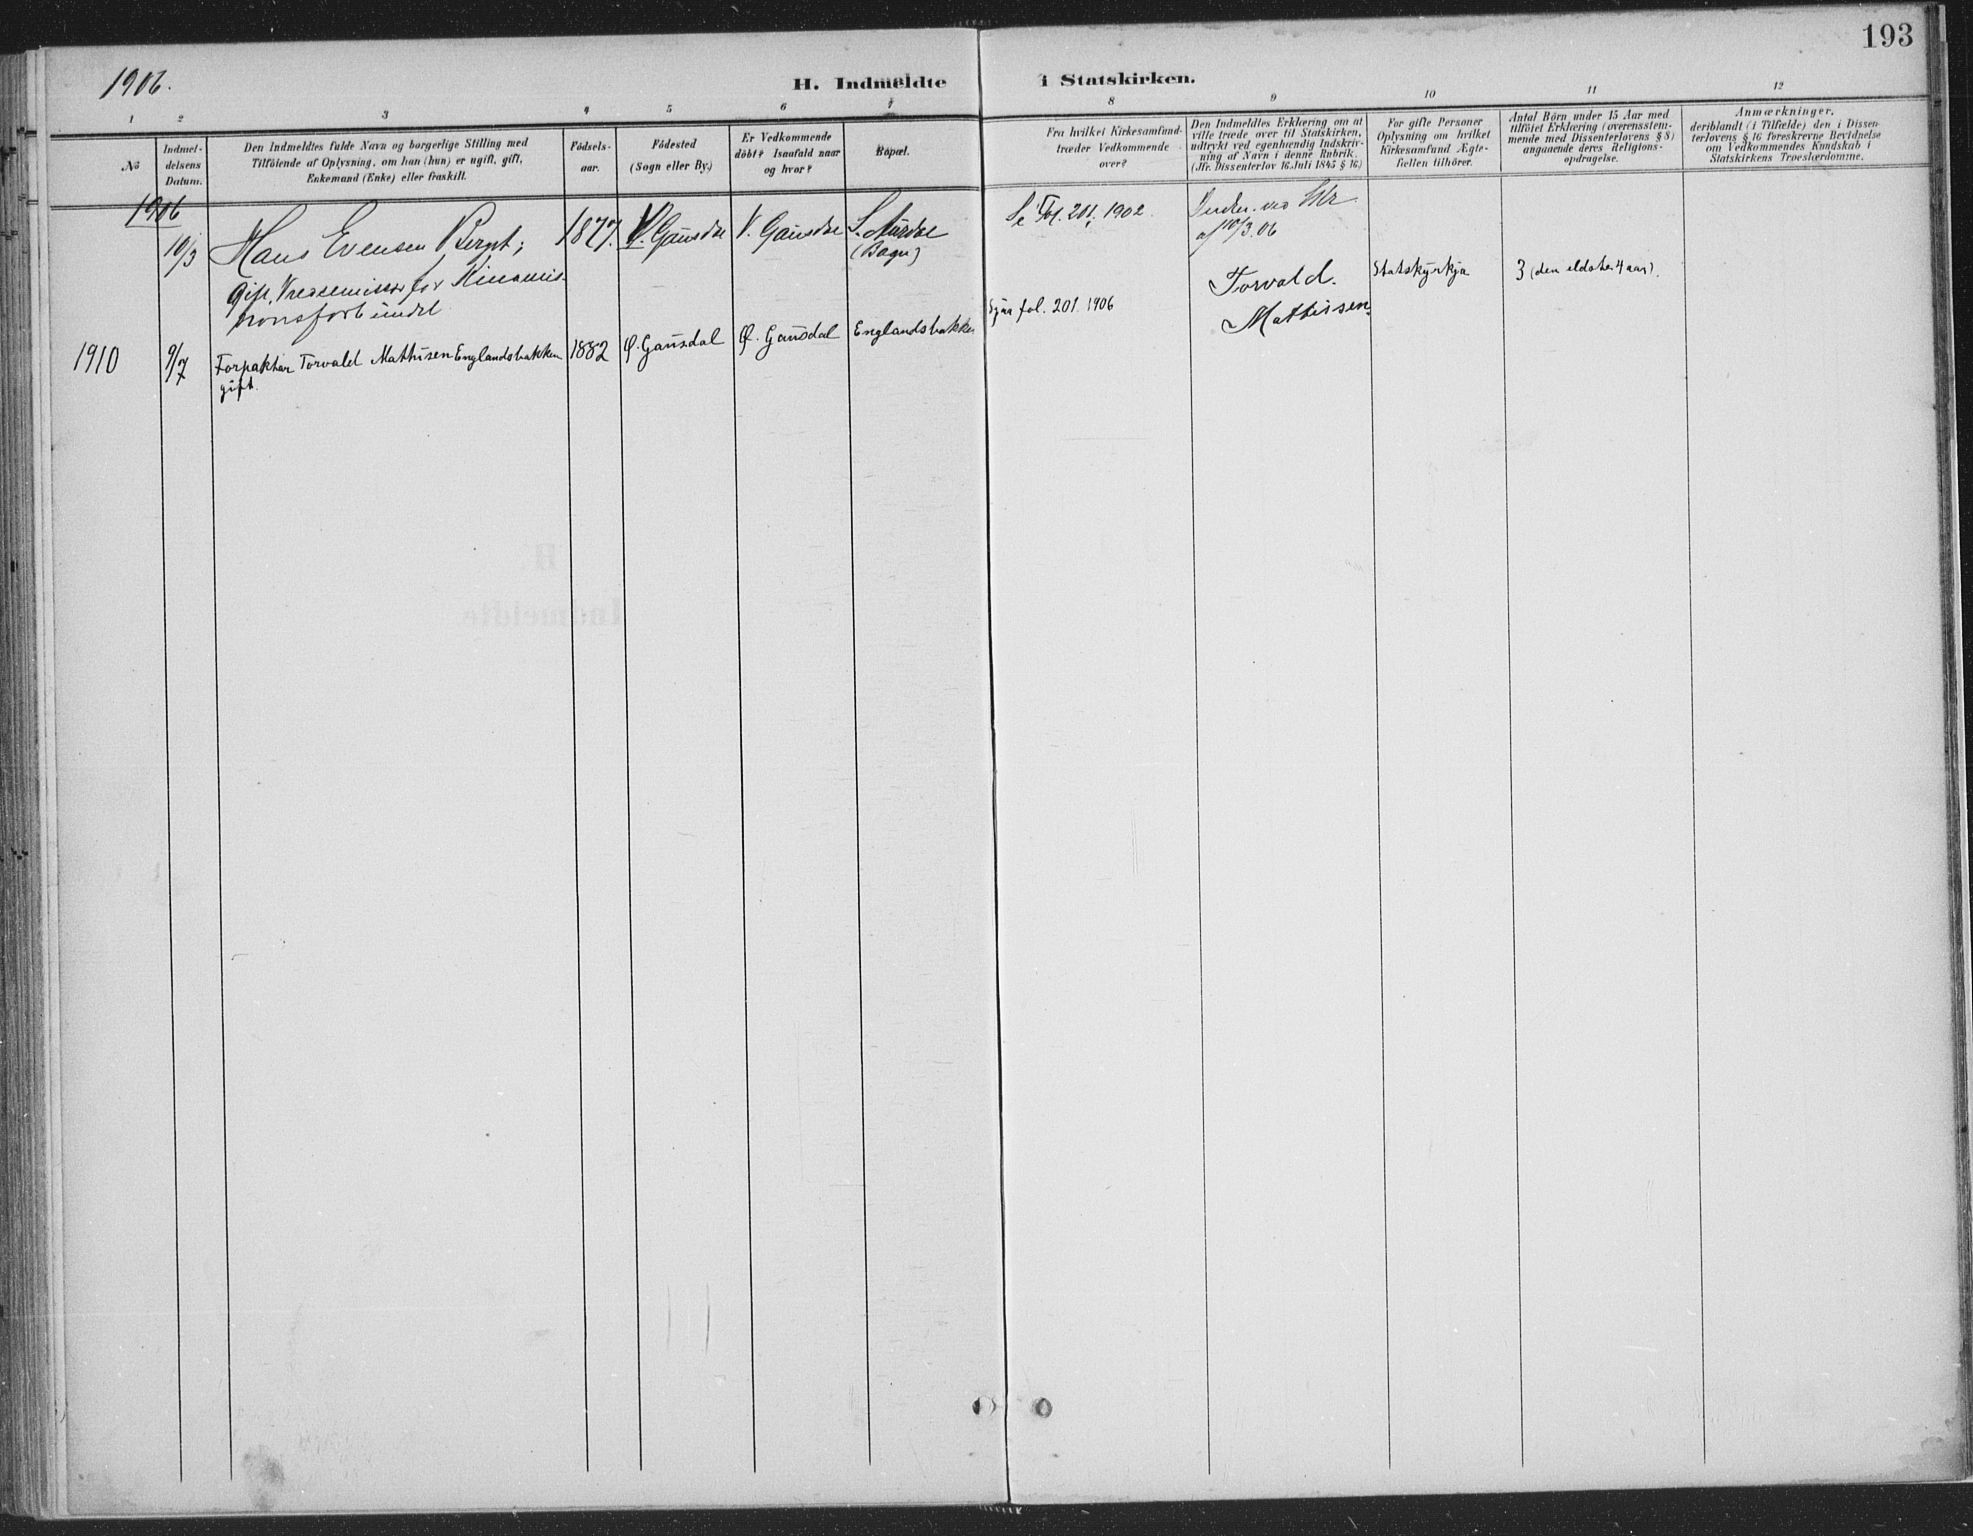 193
1906.
H. Indmeldte i Statskirken.
1 2 3 4 5 6 7 8 9 10 11 12
No
Indmel-
delsens
Datum.
Den Indmeldtes fulde Navn og borgerlige Stilling med
Tilföiende af Oplysning, om han (hun) er ugift, gift,
Enkemand (Enke) eller fraskilt.
Födsels-
aar.
Födested
(Sogn eller By.)
Er Vedkommende
döbt? Isaafald naar
og hvor?
Bopæl.
Fra hvilket Kirkesamfund
træder Vedkommende
over?
Den Indmeldtes Erklæring om at
ville træde over til Statskirken,
udtrykt ved egenhændig Indskriv-
ning af Navn i denne Rubrik.
(Jfr. Dissenterlov 16 Juli 1845 § 16)
For gifte Personer
Oplysning om hvilket
Kirkesamfund Ægte-
fællen tilhörer.
Antal Börn under 15 Aar med
tilföiet Erklæring (overensstem-
mende med Dissenterlovens § 8)
angaaende deres Religions-
opdragelse.
Anmærkninger,
deriblandt (i Tilfælde) den i Dissen-
terlovens § 16 foreskrevne Bevidnelse
om Vedkommendes Kundskab i
Statskirkens Troeslærdomme.
1906
10/3 Hans Evensen 1877. V. Gausdal V. Gausdal S. Aurdal
(Bagn)
Se Fol. 201, 1902.
af 10/3.06
gift, for Kinamis-
sionsforbundet
1910 9/7 Forpaktar Torvald Mathisen Englandsbakken 1882 Ø. Gausdal Ø. Gausdal Englandsbakken
gift.
Sjaa fol. 201 1906
Torvald
Mathissen
Statskyrkja
3 (den eldste 4 aar).